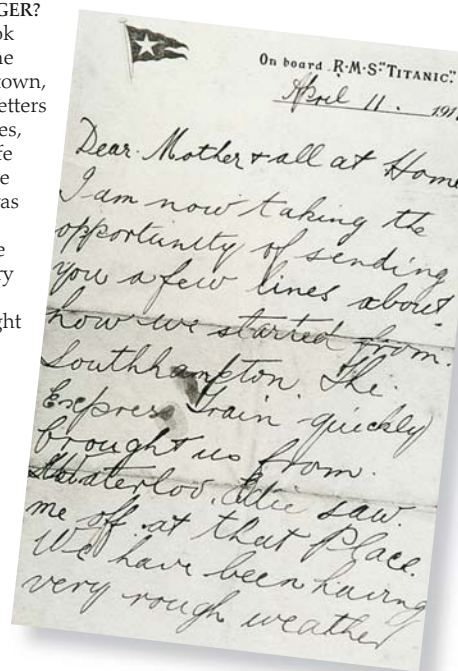 GER?
ok
ne
town,
etters
es,
fe
e
vas
e
ry
ght
On board R·M·S "TITANIC."
April 11. 191
Dear Mother & all at Home
I am now taking the
opportunity of sending
you a few lines about
how we started from.
Southhampton. The.
Express Train quickly
brought us from.
Waterloo. Ettie saw.
me off. at that Place.
We have been having
very rough weather